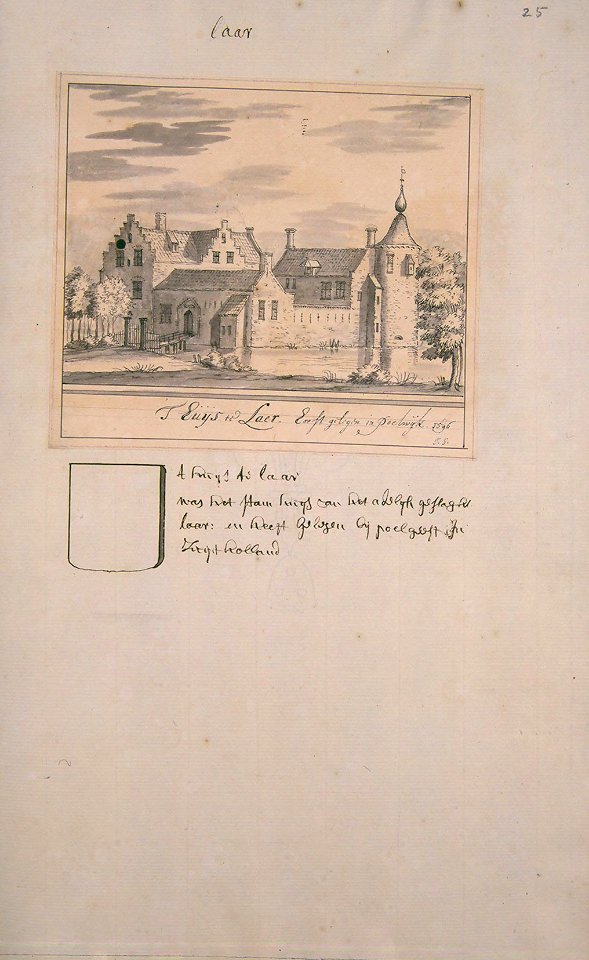 25
laar
T Huijs te Laer. Eerst gelegen in Poelwijk. 1596
S.S.
t huijs te laar
was het stam huijs van het adelijk geslagte
laar: en heeft gelegen bij poelgeest in
Zuijt holland